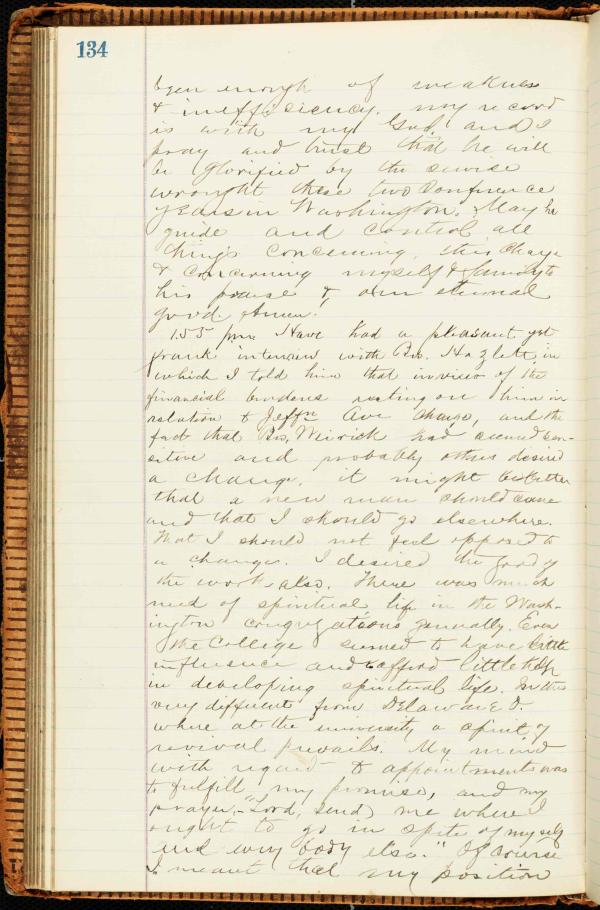 134
been enough of weakness
& inefficiency. My record
is with my God, and I
pray and trust that he will
be glorified by the service
wrought these two Conference
years in Washington. May he
guide and control all
things concerning this charge
& concerning myself & family to
his praise & our eternal
good. Amen.
1.55 pm. Have had a pleasant yet
frank interview with Bro. Hazlett in
which I told him that in view of the
financial burdens resting on him in
relation to Jeffn Ave charge, and the
fact that Bro. Weirick had seemed sen-
sitive and probably others desired
a change, it might be better
that a new man should come
and that I should go elsewhere.
That I should not feel opposed to
a change. I desired the good of
the work also. There was much
need of spiritual life in the Wash-
ington congregations generally. Even
the College seemed to have little
influence and afford little help
in developing spiritual life. In this
very different from Delaware O.
where at the university a spirit of
revival prevails. My mind
with regard to appointments was
to fulfill my promise, and my
prayer,- "Lord, send me where I
ought to go in spite of myself
and every body else." Of course
I meant that my position